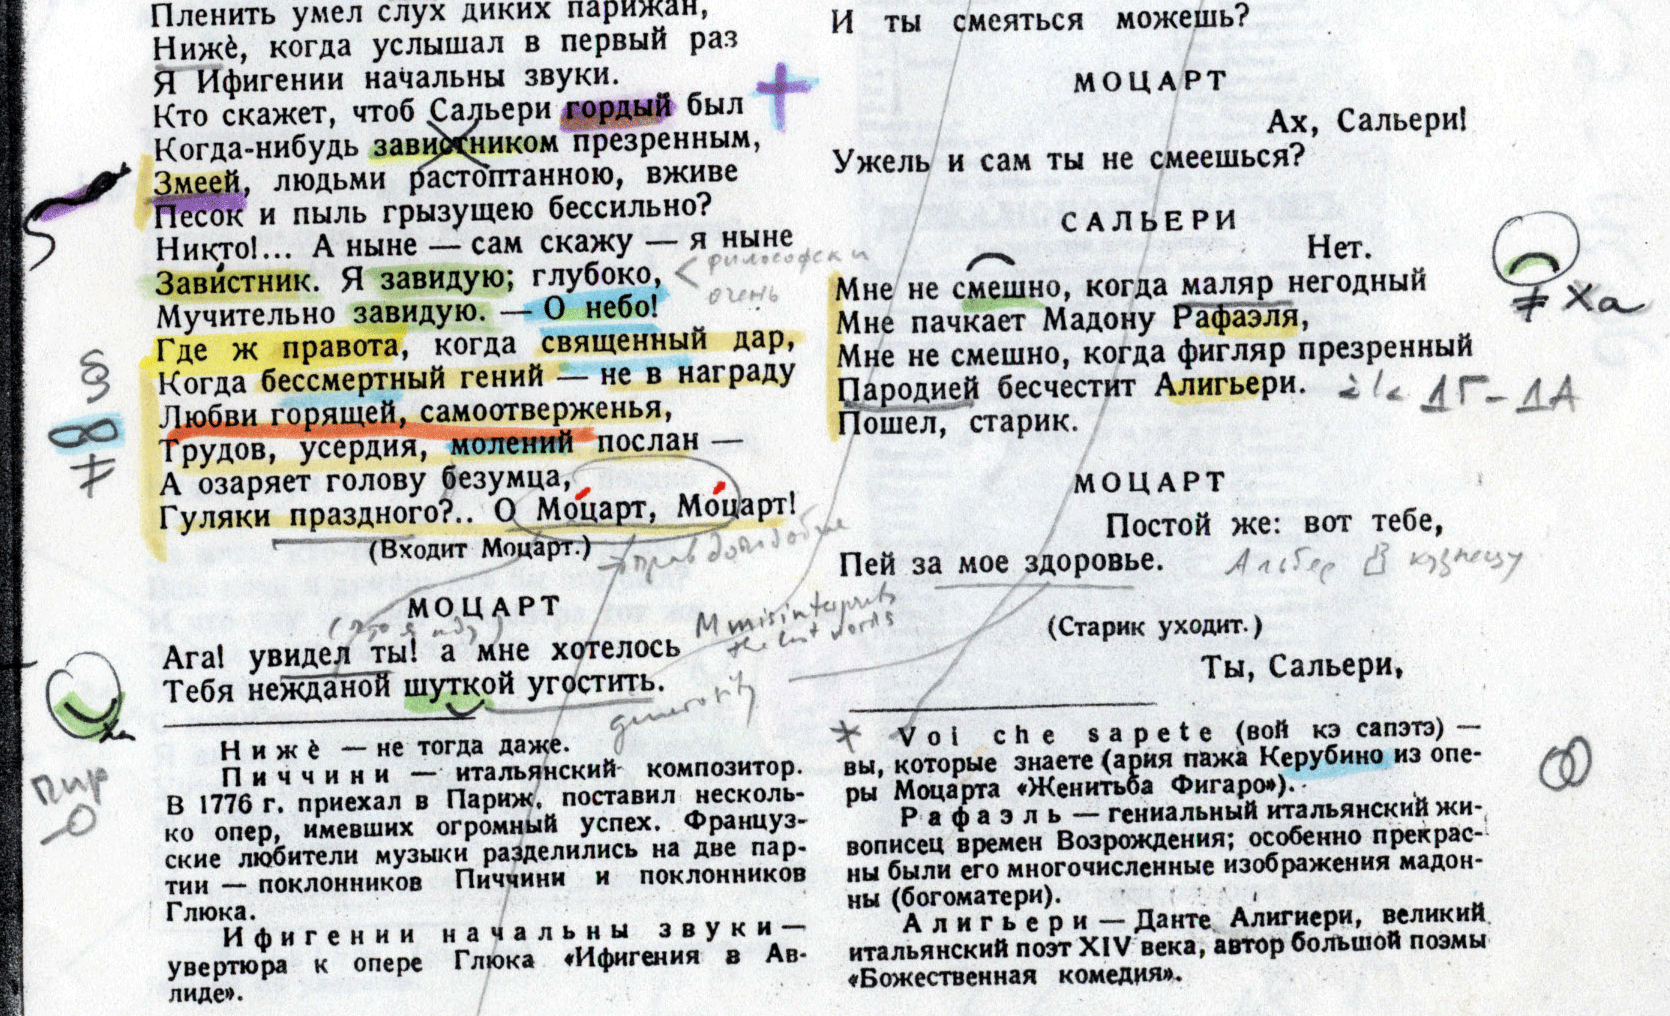 Пленить умел слух диких парижан,
Нижѐ, когда услышал в первый раз
Я Ифигении начальны звуки.
Кто скажет, чтоб Сальери гордый был
Когда-нибудь завистником презренным,
Змеей, людьми растоптанною, вживе
Песок и пыль грызущею бессильно?
Никто!... А ныне — сам скажу — я ныне
Завистник. Я завидую; глубоко,
философски
очень
Мучительно завидую. — О небо!
Где ж правота, когда священный дар,
Когда бессмертный гений — не в награду
Любви горящей, самоотверженья,
Трудов, усердия, молений послан —
А озаряет голову безумца,
Гуляки праздного?.. О Мо́царт, Мо́царт!
(Входит Моцарт.)
правдоподобие
МОЦАРТ
M misinterprets
the last words
Ага! увидел ты! а мне хотелось
Тебя нежданой шуткой угостить.
generosity
ха
пир
Нижѐ — не тогда даже.
Пиччини — итальянский композитор.
В 1776 г. приехал в Париж, поставил несколь-
ко опер, имевших огромный успех. Француз-
ские любители музыки разделились на две пар-
тии — поклонников Пиччини и поклонников
Глюка.
Ифигении начальны звуки —
увертюра к опере Глюка «Ифигения в Ав-
лиде».
И ты смеяться можешь?
МОЦАРТ
Ах, Сальери!
Ужель и сам ты не смеешься?
САЛЬЕРИ
Нет.
Мне не смешно, когда маляр негодный
≠ Ха
Мне пачкает Мадону Рафаэля,
Мне не смешно, когда фигляр презренный
Пародией бесчестит Алигьери.
ДГ - ДА
Пошел, старик.
МОЦАРТ
Постой же: вот тебе,
Пей за мое здоровье.
Альбер кузнецу
(Старик уходит.)
Ты, Сальери,
* Voi che sapete (вой кэ сапэтэ) —
вы, которые знаете (ария пажа Керубино из опе-
ры Моцарта «Женитьба Фигаро»).
Рафаэль — гениальный итальянский жи-
вописец времен Возрождения; особенно прекрас-
ны были его многочисленные изображения мадон-
ны (богоматери).
Алигьери — Данте Алигиери, великий
итальянский поэт XIV века, автор большой поэмы
«Божественная комедия».